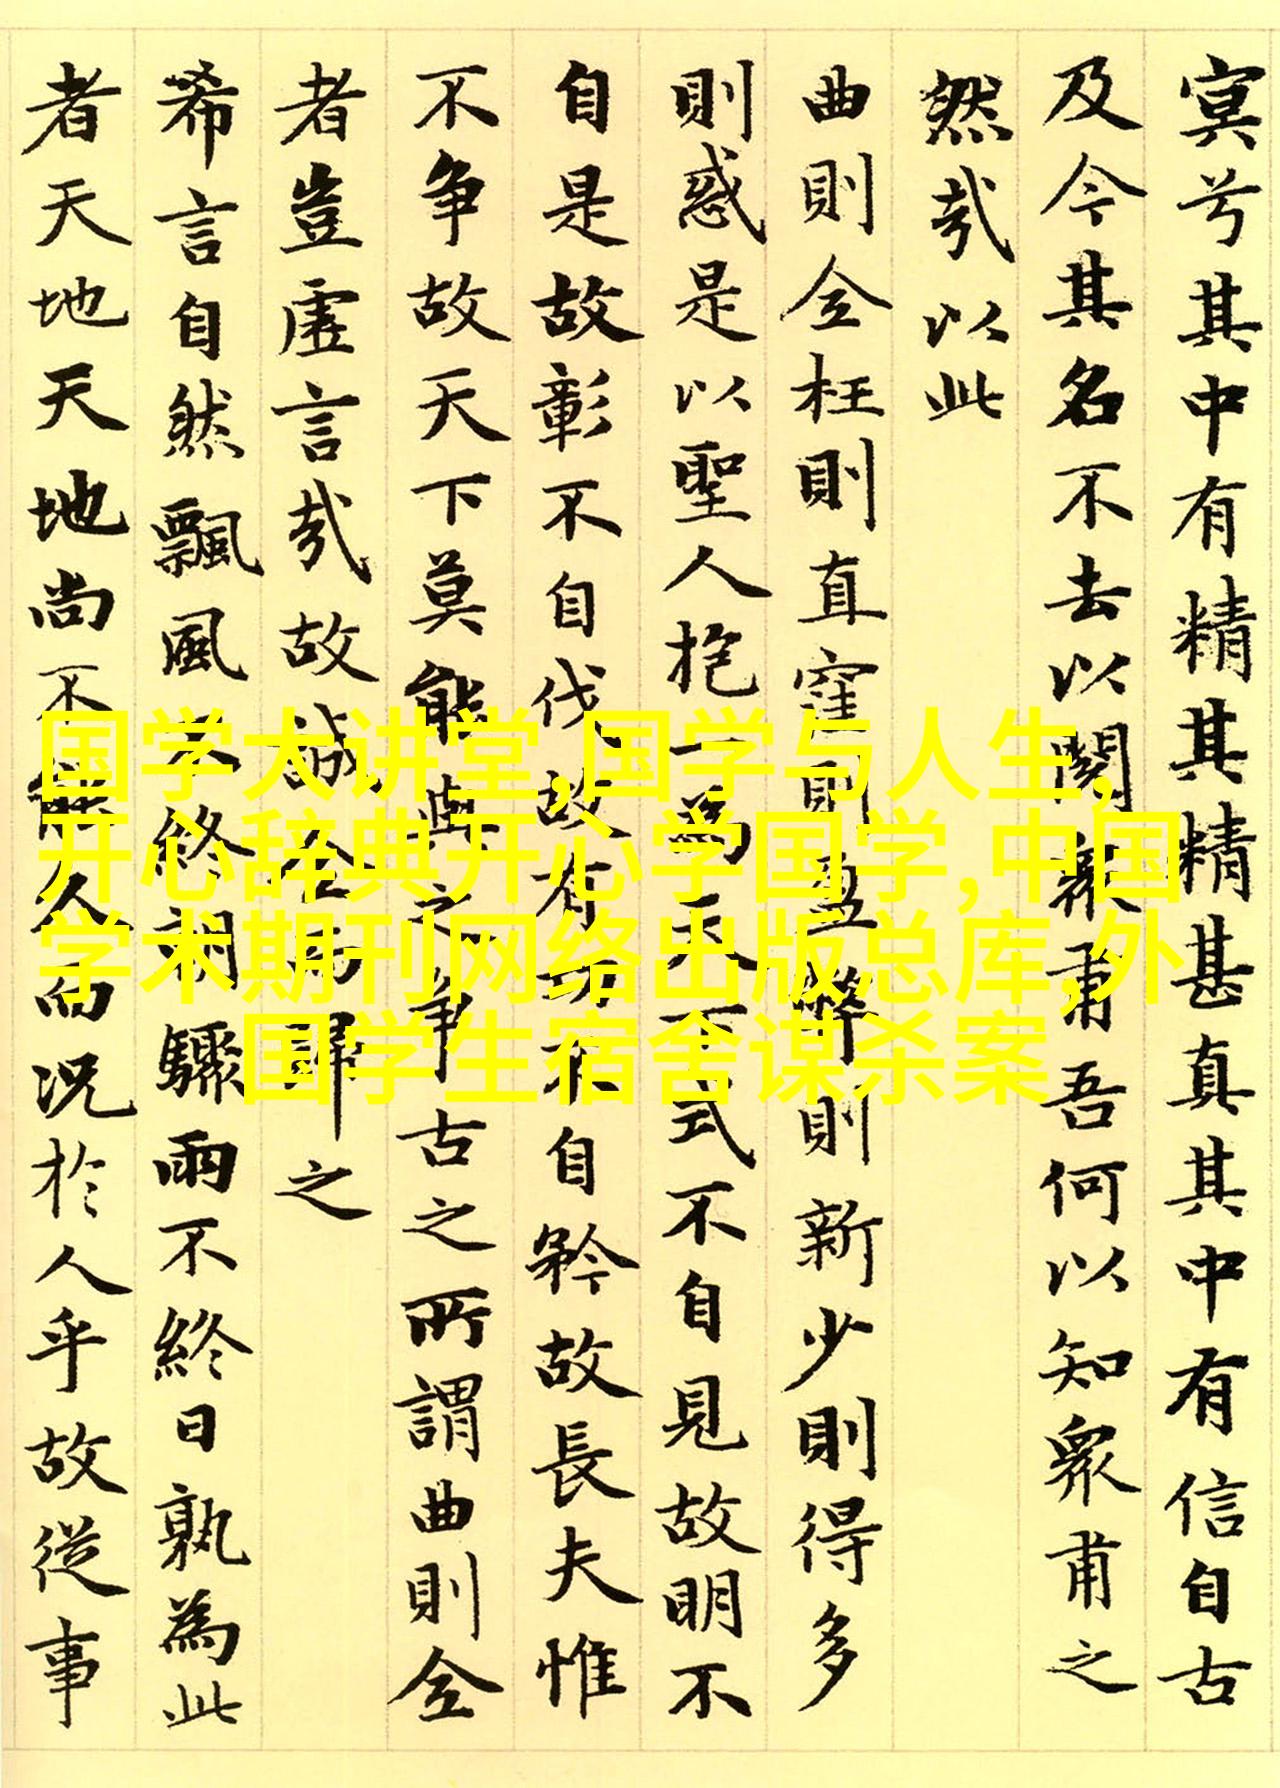 㝠兮其中有精其精甚真其中有信自古
及今其名不去以閱衆甫吾何以知衆甫之
然哉以此
曲則全枉則直窪則盈弊則新少則得多
則惑是以聖人抱一為天下式不自見故明不
自是故彰不自伐故有功不自矜故長夫惟
不争故天下莫能與之争古之所謂曲則全
者豈虛言哉故誠全而歸之
希言自然飄風不終朝驟雨不終日孰為此
者天地天地尚不能久而況於人乎故從事
国学大讲堂,国学与人生,
开心辞典开心学国学,中国
学术期刊网络出版总库,外
国学生宿舍谋杀案